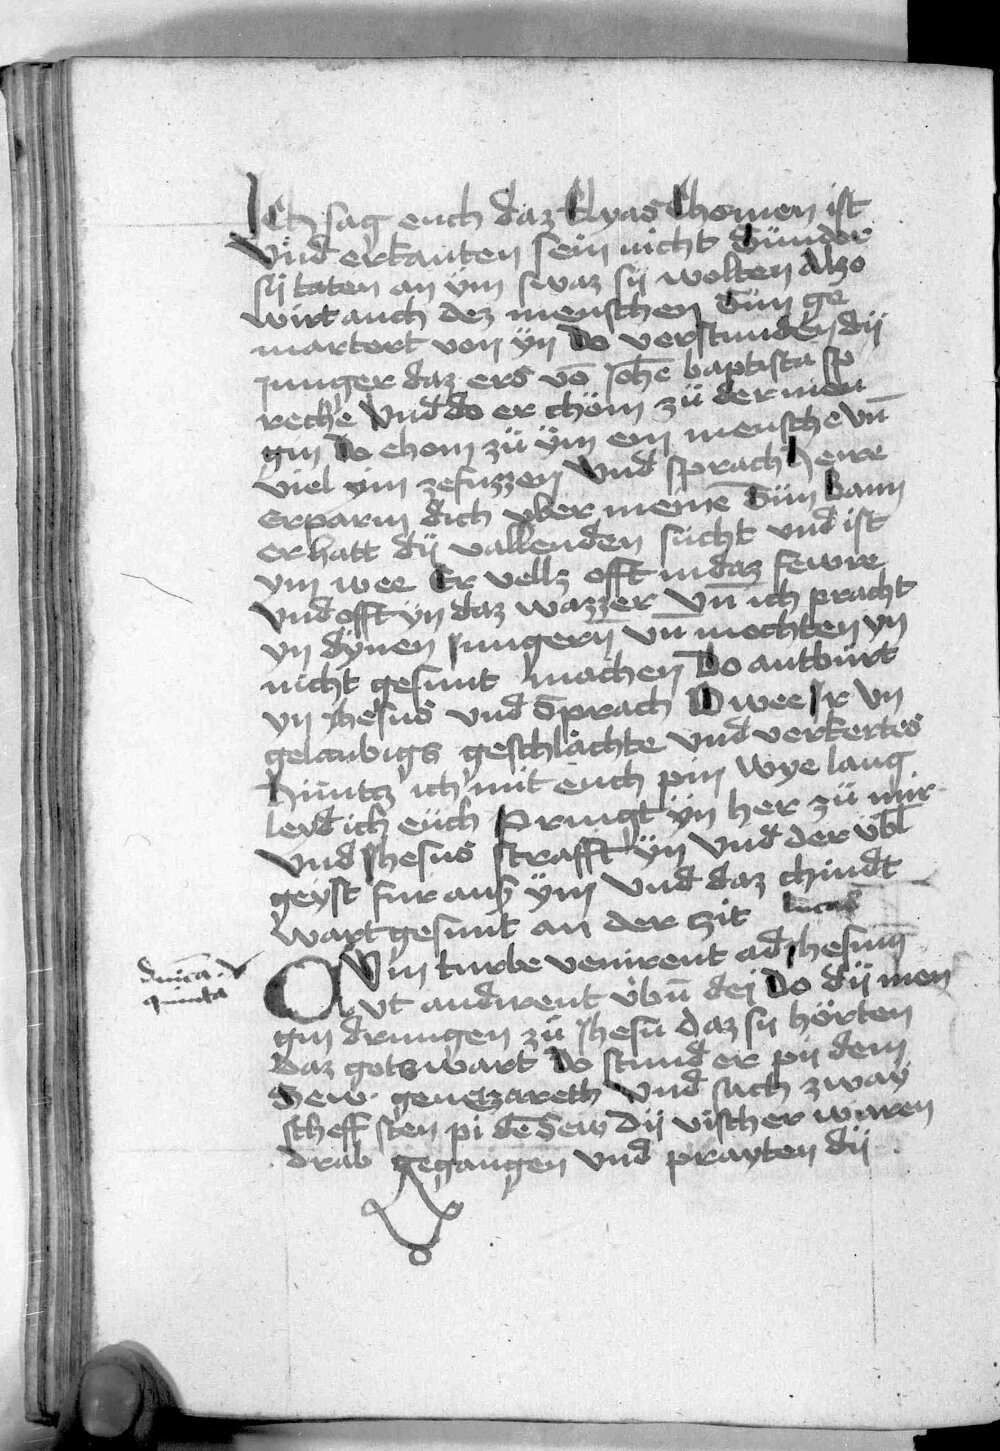 Ich sag euch daz Elyas Chomen ist
Vnd erkanten sein nicht Sunder
sij taten an ym swaz sij wolten Alzo
wirt auch dez menschen Sun ge
martert von yn Do verstunden dij
junger daz ers vō Johē baptista sp
reche Vnd do er chöm zü der men
gin Do chom zü ÿm ein mensche vn̄
viel ÿm zefuzzen Vnd sprach herre
Erparm dich vber meinē Sün Wann
er hatt dÿ vallenden sücht vnd ist
ym wee Er vellz offt in daz fewre
Vnd offt ÿn daz wazzer Vn̄ ich pracht
yn dÿnen Jungern̄ vn̄ mochten yn
nicht gesunt machen Do antburt
yn Jhesus vnd Sprach O wee Ir vn
gelaubigs geschlächte vnd verkertes
hüntz ich mit euch pin wye lang
leyd ich eüch Pringt ÿn her zü mir
Vnd Jhesus strafft ÿn Vnd der übl
geyst fur auß ÿm Vnd daz chindt
wart gesunt an der zit lucas
Dnica V quinta
CVm turbe venirent ad Jhesum̄
Vt audirent v̇bū dei Do dij men
gin drungen zü Jhesu daz sij hörten
daz gotz wart Do stund er pij dem
Sew genetzareth Vnd sach zway
scheff sten pi dē Sew Dij vischer waren
drab gegangen vnd prayten dij